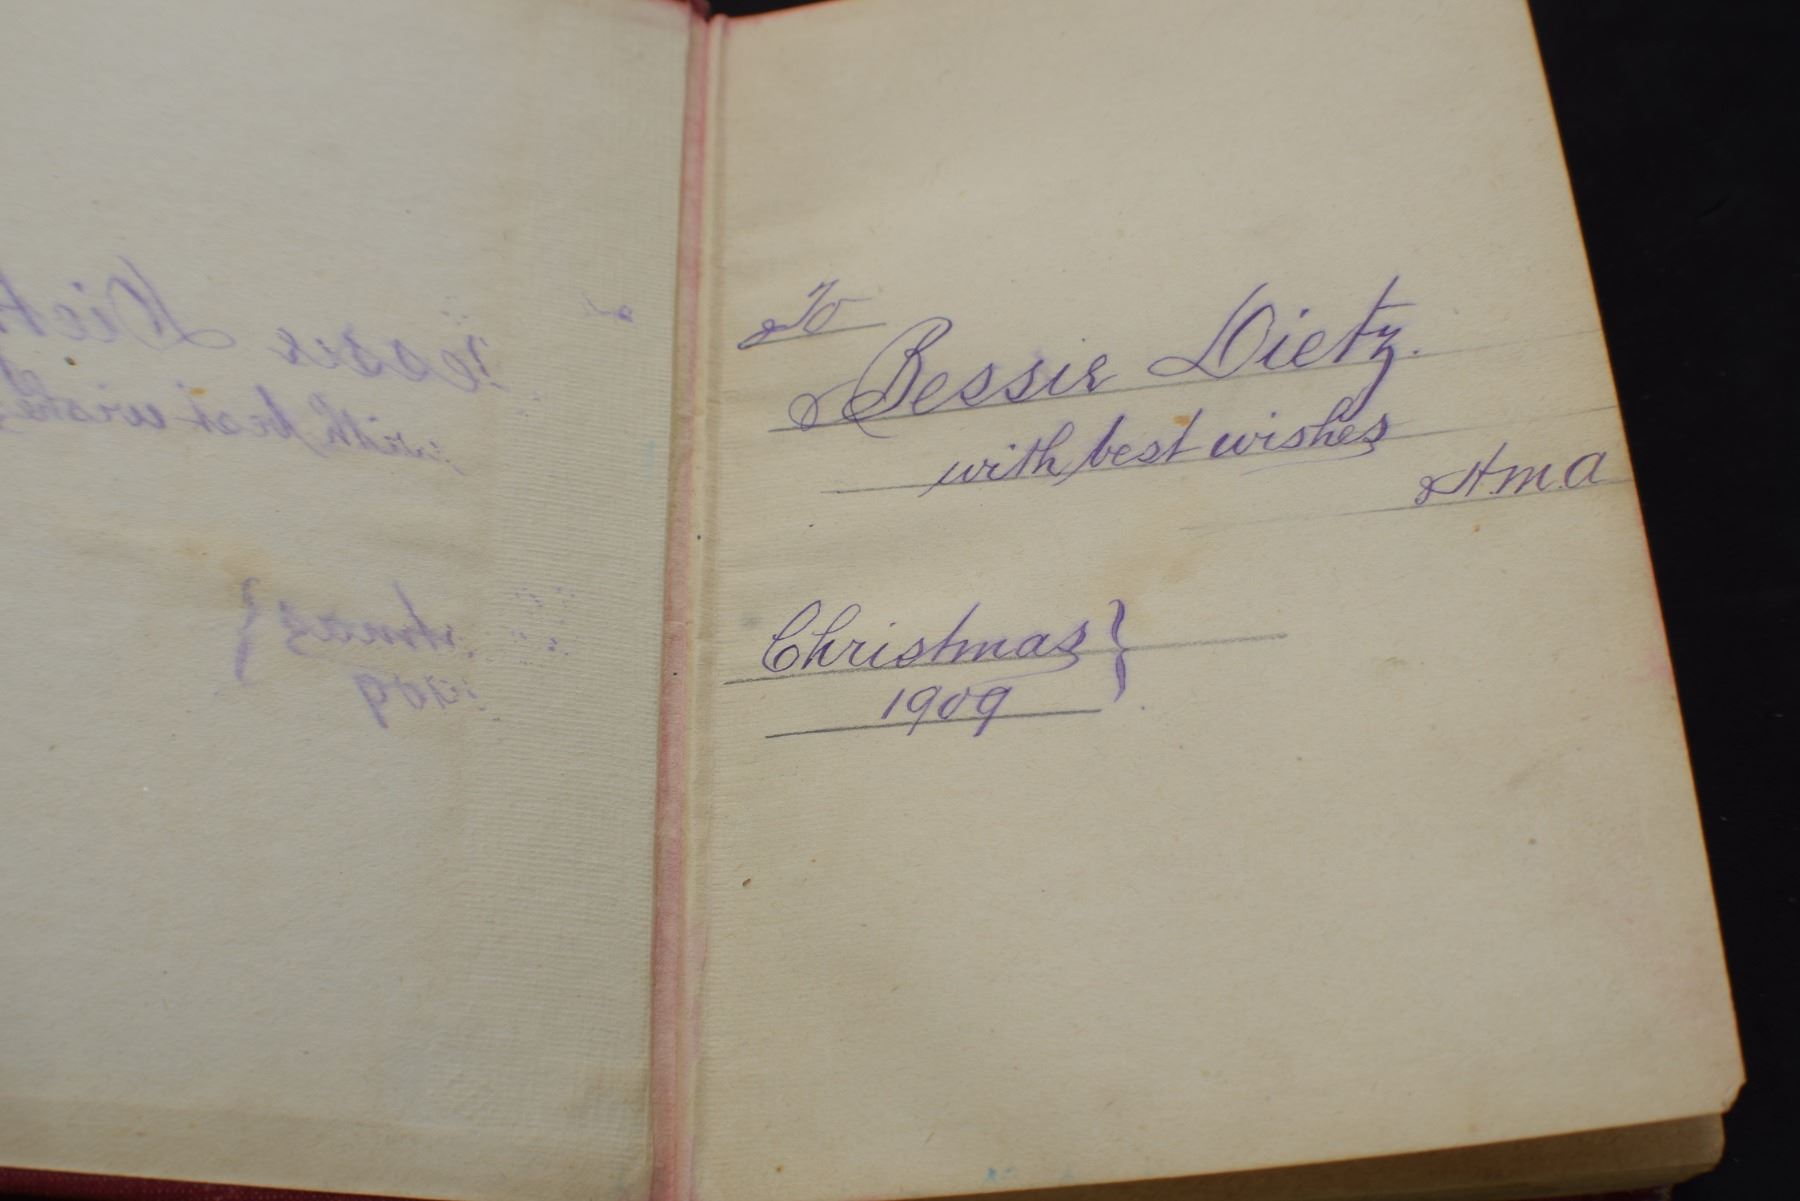 To
Bessie Dietz.
with best wishes
H.M.A
Christmas }
1909